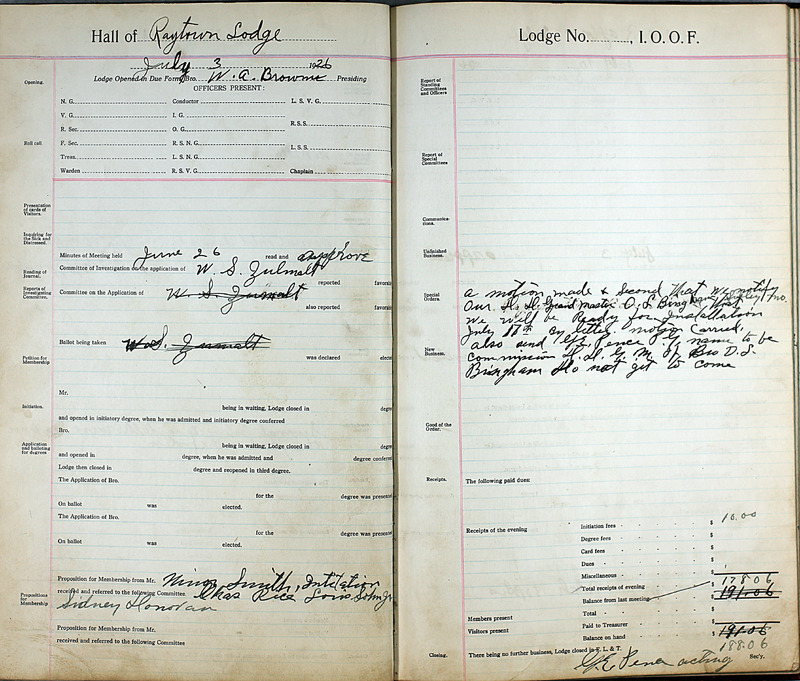 Hall of Raytown Lodge
July 3 1926
Opening.
Lodge Opened in Due Form, Bro. W. A. Browne Presiding
OFFICERS PRESENT:
N. G. Conductor L. S. V. G.
V. G. I. G.
R. S. S.
R. Sec. O. G.
Roll call
F. Sec. R. S. N. G.
L. S. S.
Treas. L. S. N. G.
Warden R. S. V. G. Chaplain
Presentation of cards of Visitors.
Inquiring for the Sick and Distressed.
Minutes of Meeting held June 26 read and approve
Reading of Journal.
Committee of Investigation on the application of W. S. Zumalt
reported favora
Reports of Investigating Committee.
Committee on the Application of W. S. Zumalt
also reported favora
Ballot being taken W. S. Zumalt
was declared elect
Petition for Membership
Mr.
Initiation.
being in waiting, Lodge closed in degre
and opened in initiatory degree, when he was admitted and initiatory degree conferred
Bro.
Application and balloting for degrees
being in waiting, Lodge closed in degre
and opened in degree, when he was admitted and degree conferre
Lodge then closed in degree and reopened in third degree.
The Application of Bro.
for the degree was presente
On ballot was elected.
The Application of Bro.
for the degree was presente
On ballot was elected.
Proposition for Membership from Mr. Minor Smith, Intitation
Propositions for Membership
received and referred to the following Committee Chas Rice Louis
Sidney Donovan
Proposition for Membership from Mr.
received and referred to the following Committee
Lodge No. , I. O. O. F.
Report of Standing Committees and Officers
Report of Special Committees
Communications.
Unfinished Business
Special Orders.
a motion made & second that we notify
Our Grand Master O. S. Bingham that
we will be Ready for Installation
July 17th By letter motion Carried.
New Business.
also and Pence name to be
commission D. D. G. M. Bro D. S.
Bringham do not get to come
Good of the Order.
Receipts.
The following paid dues:
Receipts of the evening
Initiation fees $ 10.00
Degree fees
Card fees
Dues
Miscellaneous $
Total receipts of evening 178.06
Balance from last meeting $ 191.06
Members present
Total $
Visitors present
Paid to Treasurer
Balance on hand $ 191.06
188.06
Closing.
There being no further business, Lodge closed in F., L. & T.
G. E. Pence acting Sec'y.